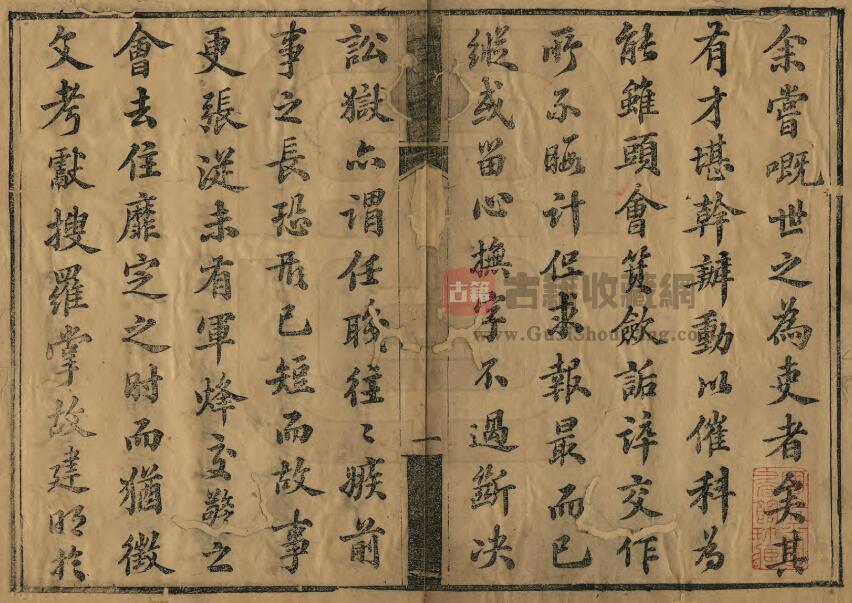 余嘗嘅世之為吏者矣其
有才堪幹辦動以催科為
能雖頭會箕斂詬谇交作
所不暇計但求報最而已
縱或留心撫字不過斷决
訟獄亦謂任職往〻嫉前
事之長恐形已短而故事
更張從未有軍烽交警之
會去住靡定之时而猶徵
文考獻搜羅掌故建明於
一
古籍 古籍收藏網